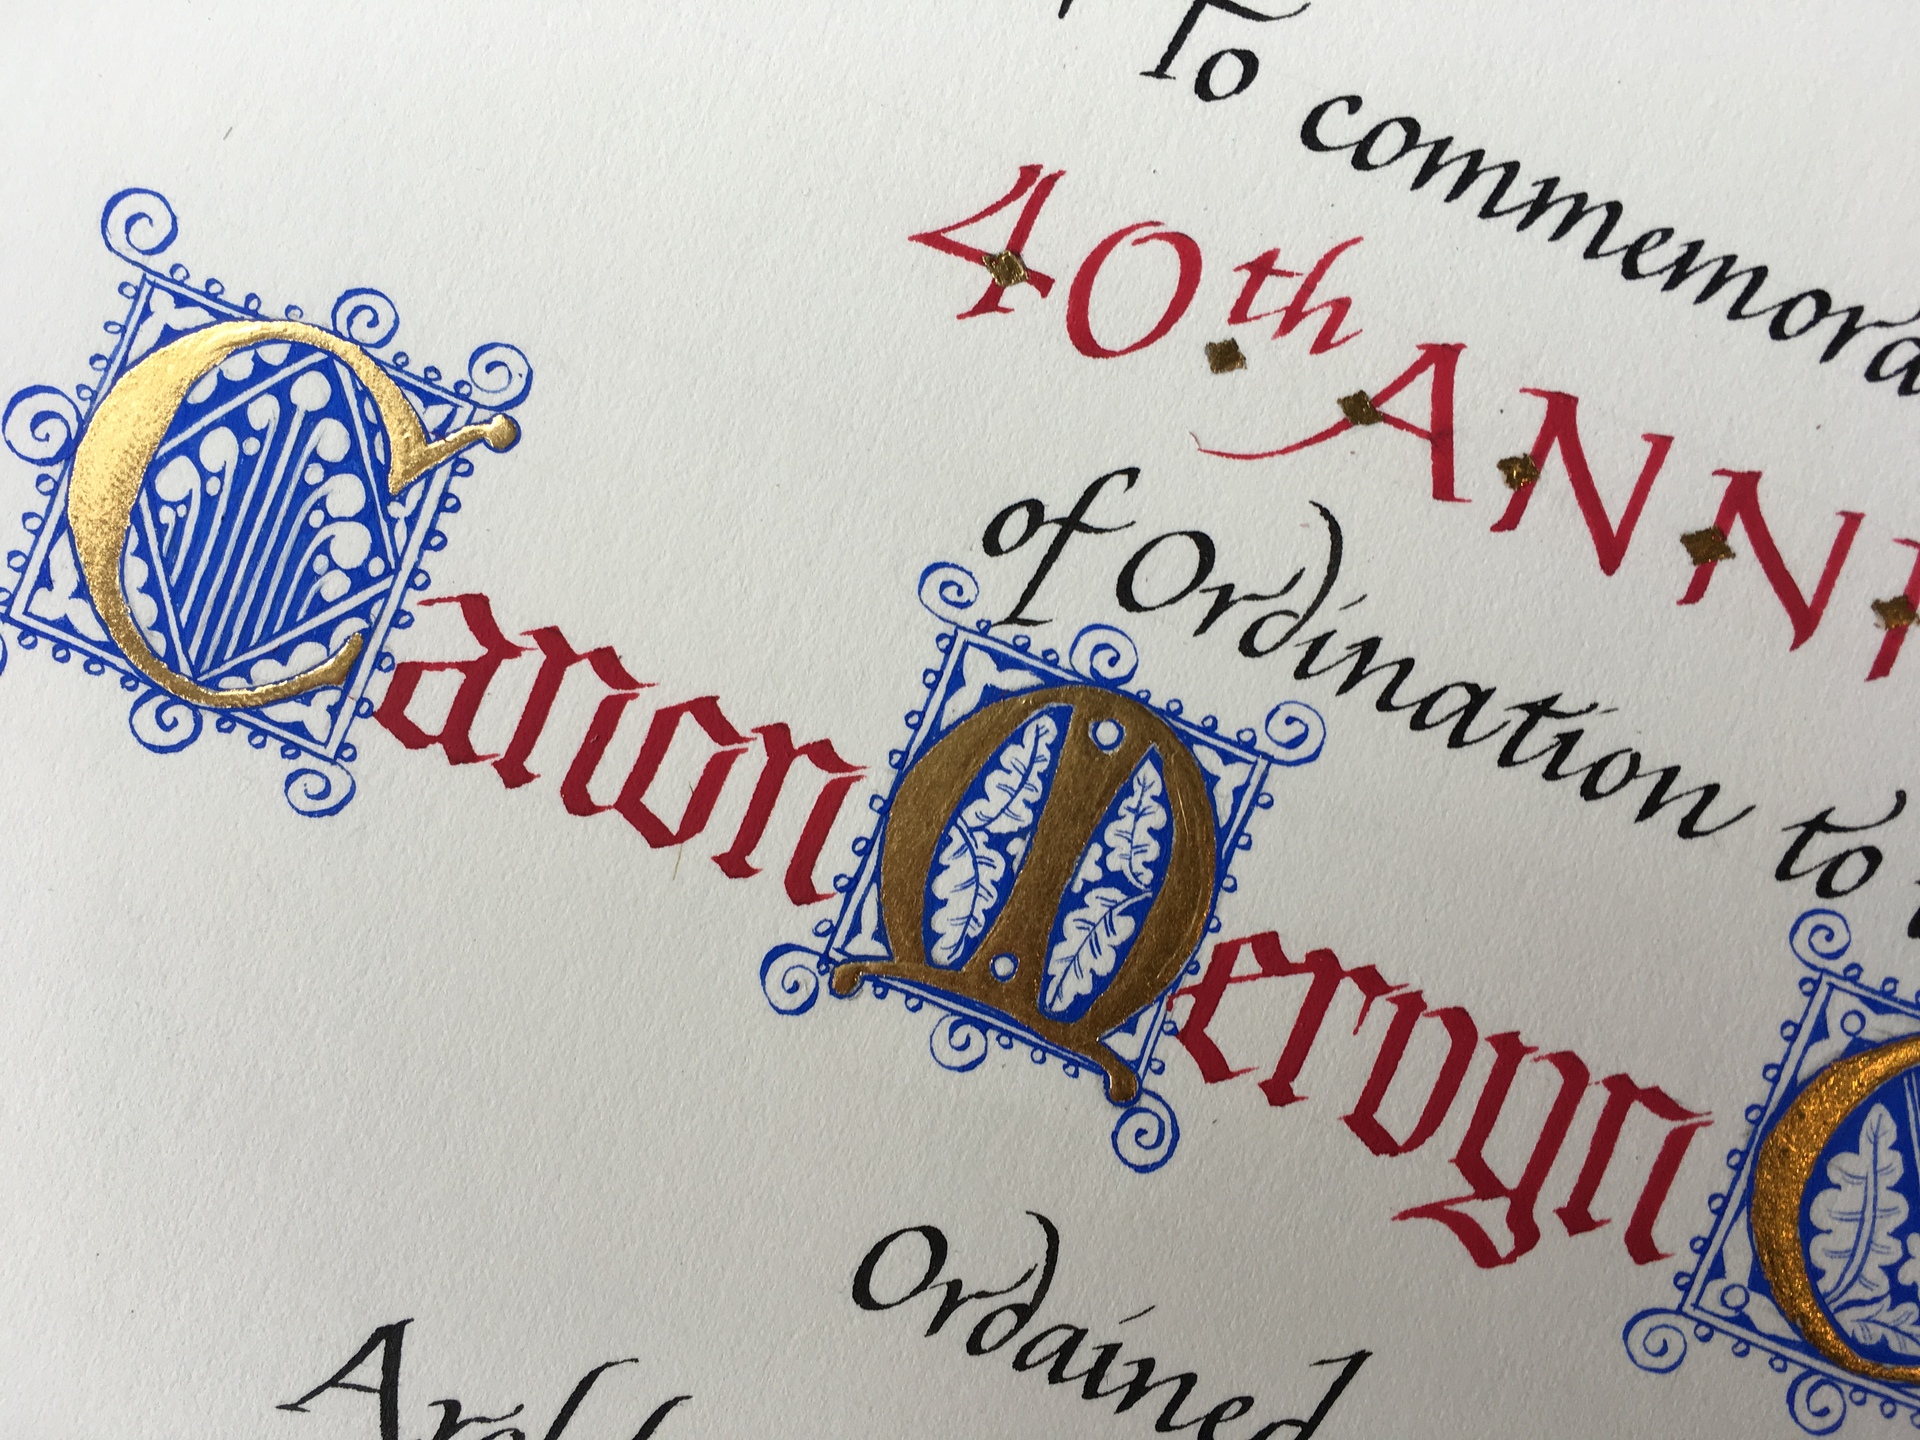 To commemora
40th ANNI
of Ordination to
Canon Mervyn C
Ordained